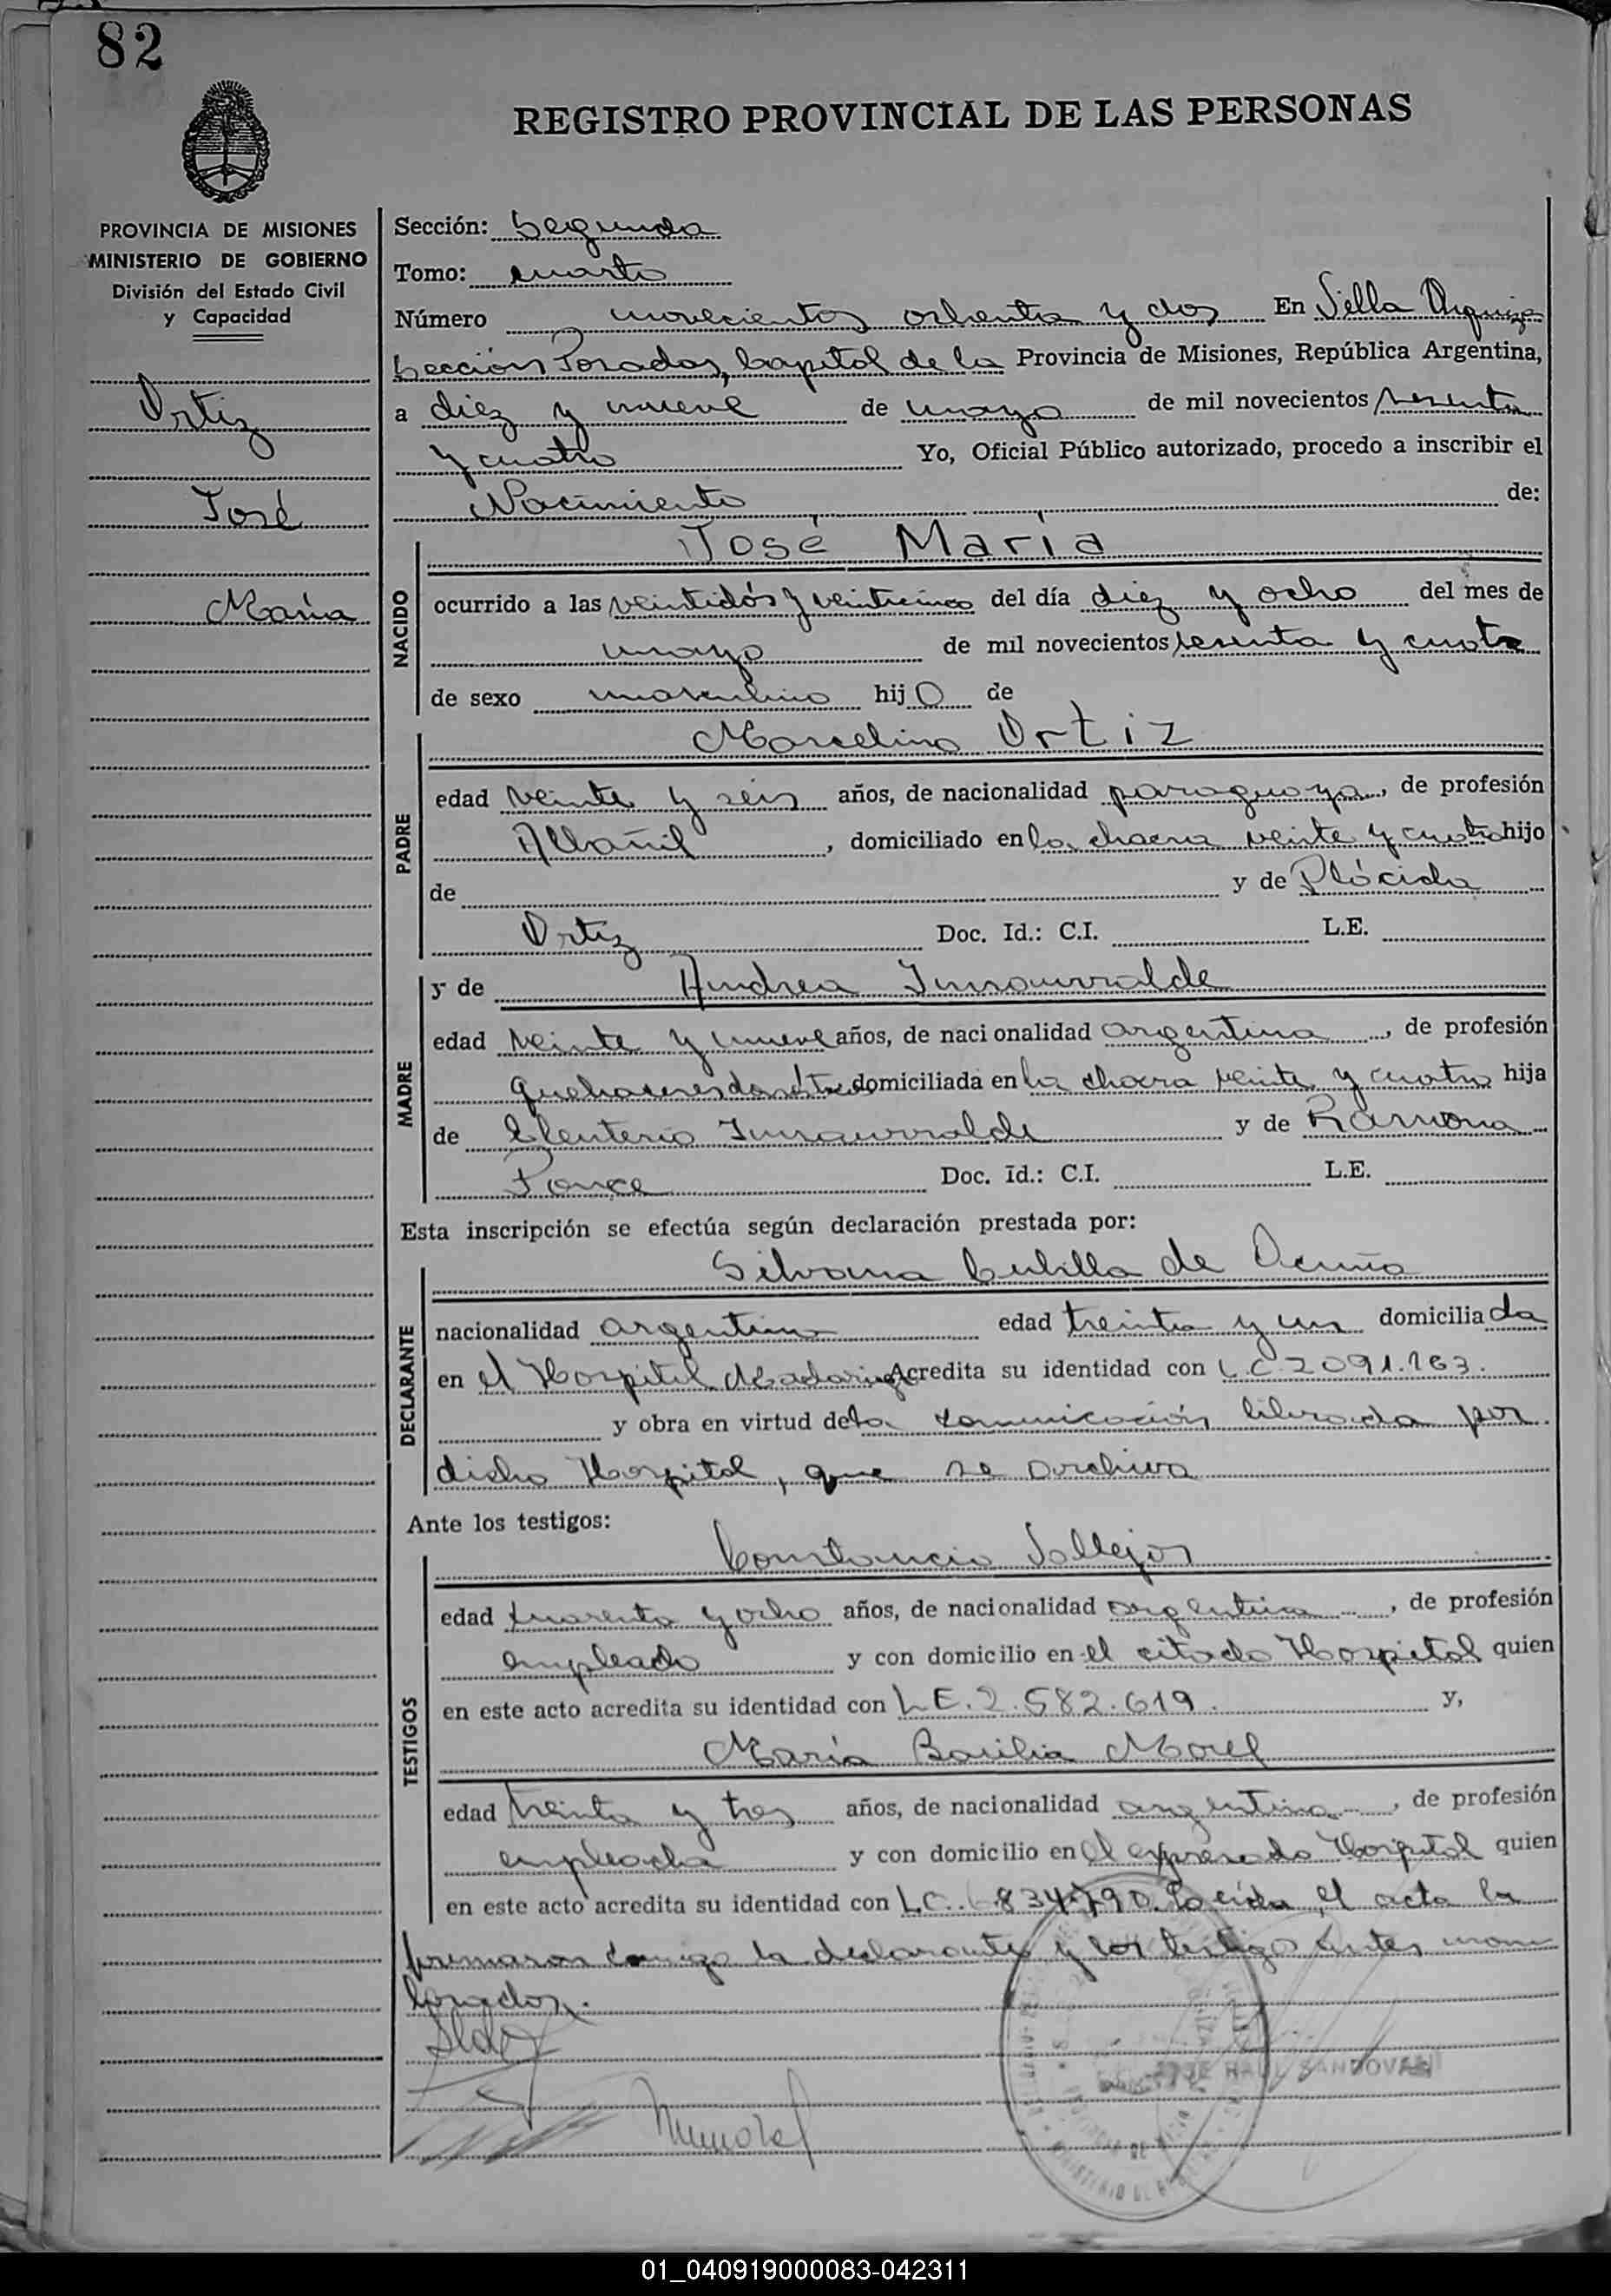 82
REGISTRO PROVINCIAL DE LAS PERSONAS
PROVINCIA DE MISIONES
MINISTERIO DE GOBIERNO
División del Estado Civil
y Capacidad
Ortiz
José
María
Sección: Segunda
Tomo: cuarto
Número novecientos ochenta y dos En Villa Urquiza
Sección Posadas, Capital de la Provincia de Misiones, República Argentina,
a diez y nueve de mayo de mil novecientos sesenta
y cuatro Yo, Oficial Público autorizado, procedo a inscribir el
Nacimiento de:
NACIDO
José María
ocurrido a las veintidós y veinticinco del día diez y ocho del mes de
mayo de mil novecientos sesenta y cuatro
de sexo masculino hijo de
PADRE
Marcelino Ortiz
edad veinte y seis años, de nacionalidad paraguaya, de profesión
Albañil, domiciliado en la chacra veinte y cuatro hijo
de y de Plácida
Ortiz Doc. Id.: C.I. L.E.
MADRE
y de Andrea Insaurralde
edad veinte y nueve años, de nacionalidad argentina, de profesión
quehaceres domésticos domiciliada en la chacra veinte y cuatro hija
de Eleuterio Insaurralde y de Ramona
Ponce Doc. Id.: C.I. L.E.
Esta inscripción se efectúa según declaración prestada por:
DECLARANTE
Silvana Cubilla de Acuña
nacionalidad argentina edad treinta y un domiciliada
en el Hospital Madariaga Acredita su identidad con L.C. 2091.163.
y obra en virtud de la comunicación librada por
dicho Hospital, que se archiva
Ante los testigos:
TESTIGOS
Constancio Vallejos
edad cuarenta y ocho años, de nacionalidad argentina, de profesión
empleado y con domicilio en el citado Hospital quien
en este acto acredita su identidad con L.E. 2.582.619. y,
María Basilia Morel
edad treinta y tres años, de nacionalidad argentina, de profesión
empleada y con domicilio en el expresado Hospital quien
en este acto acredita su identidad con L.C. 6.834.790. Leída el acta la
firmaron conmigo la declarante y los testigos antes mencionados.
JOSE RAUL SANDOVAL
01_040919000083-042311